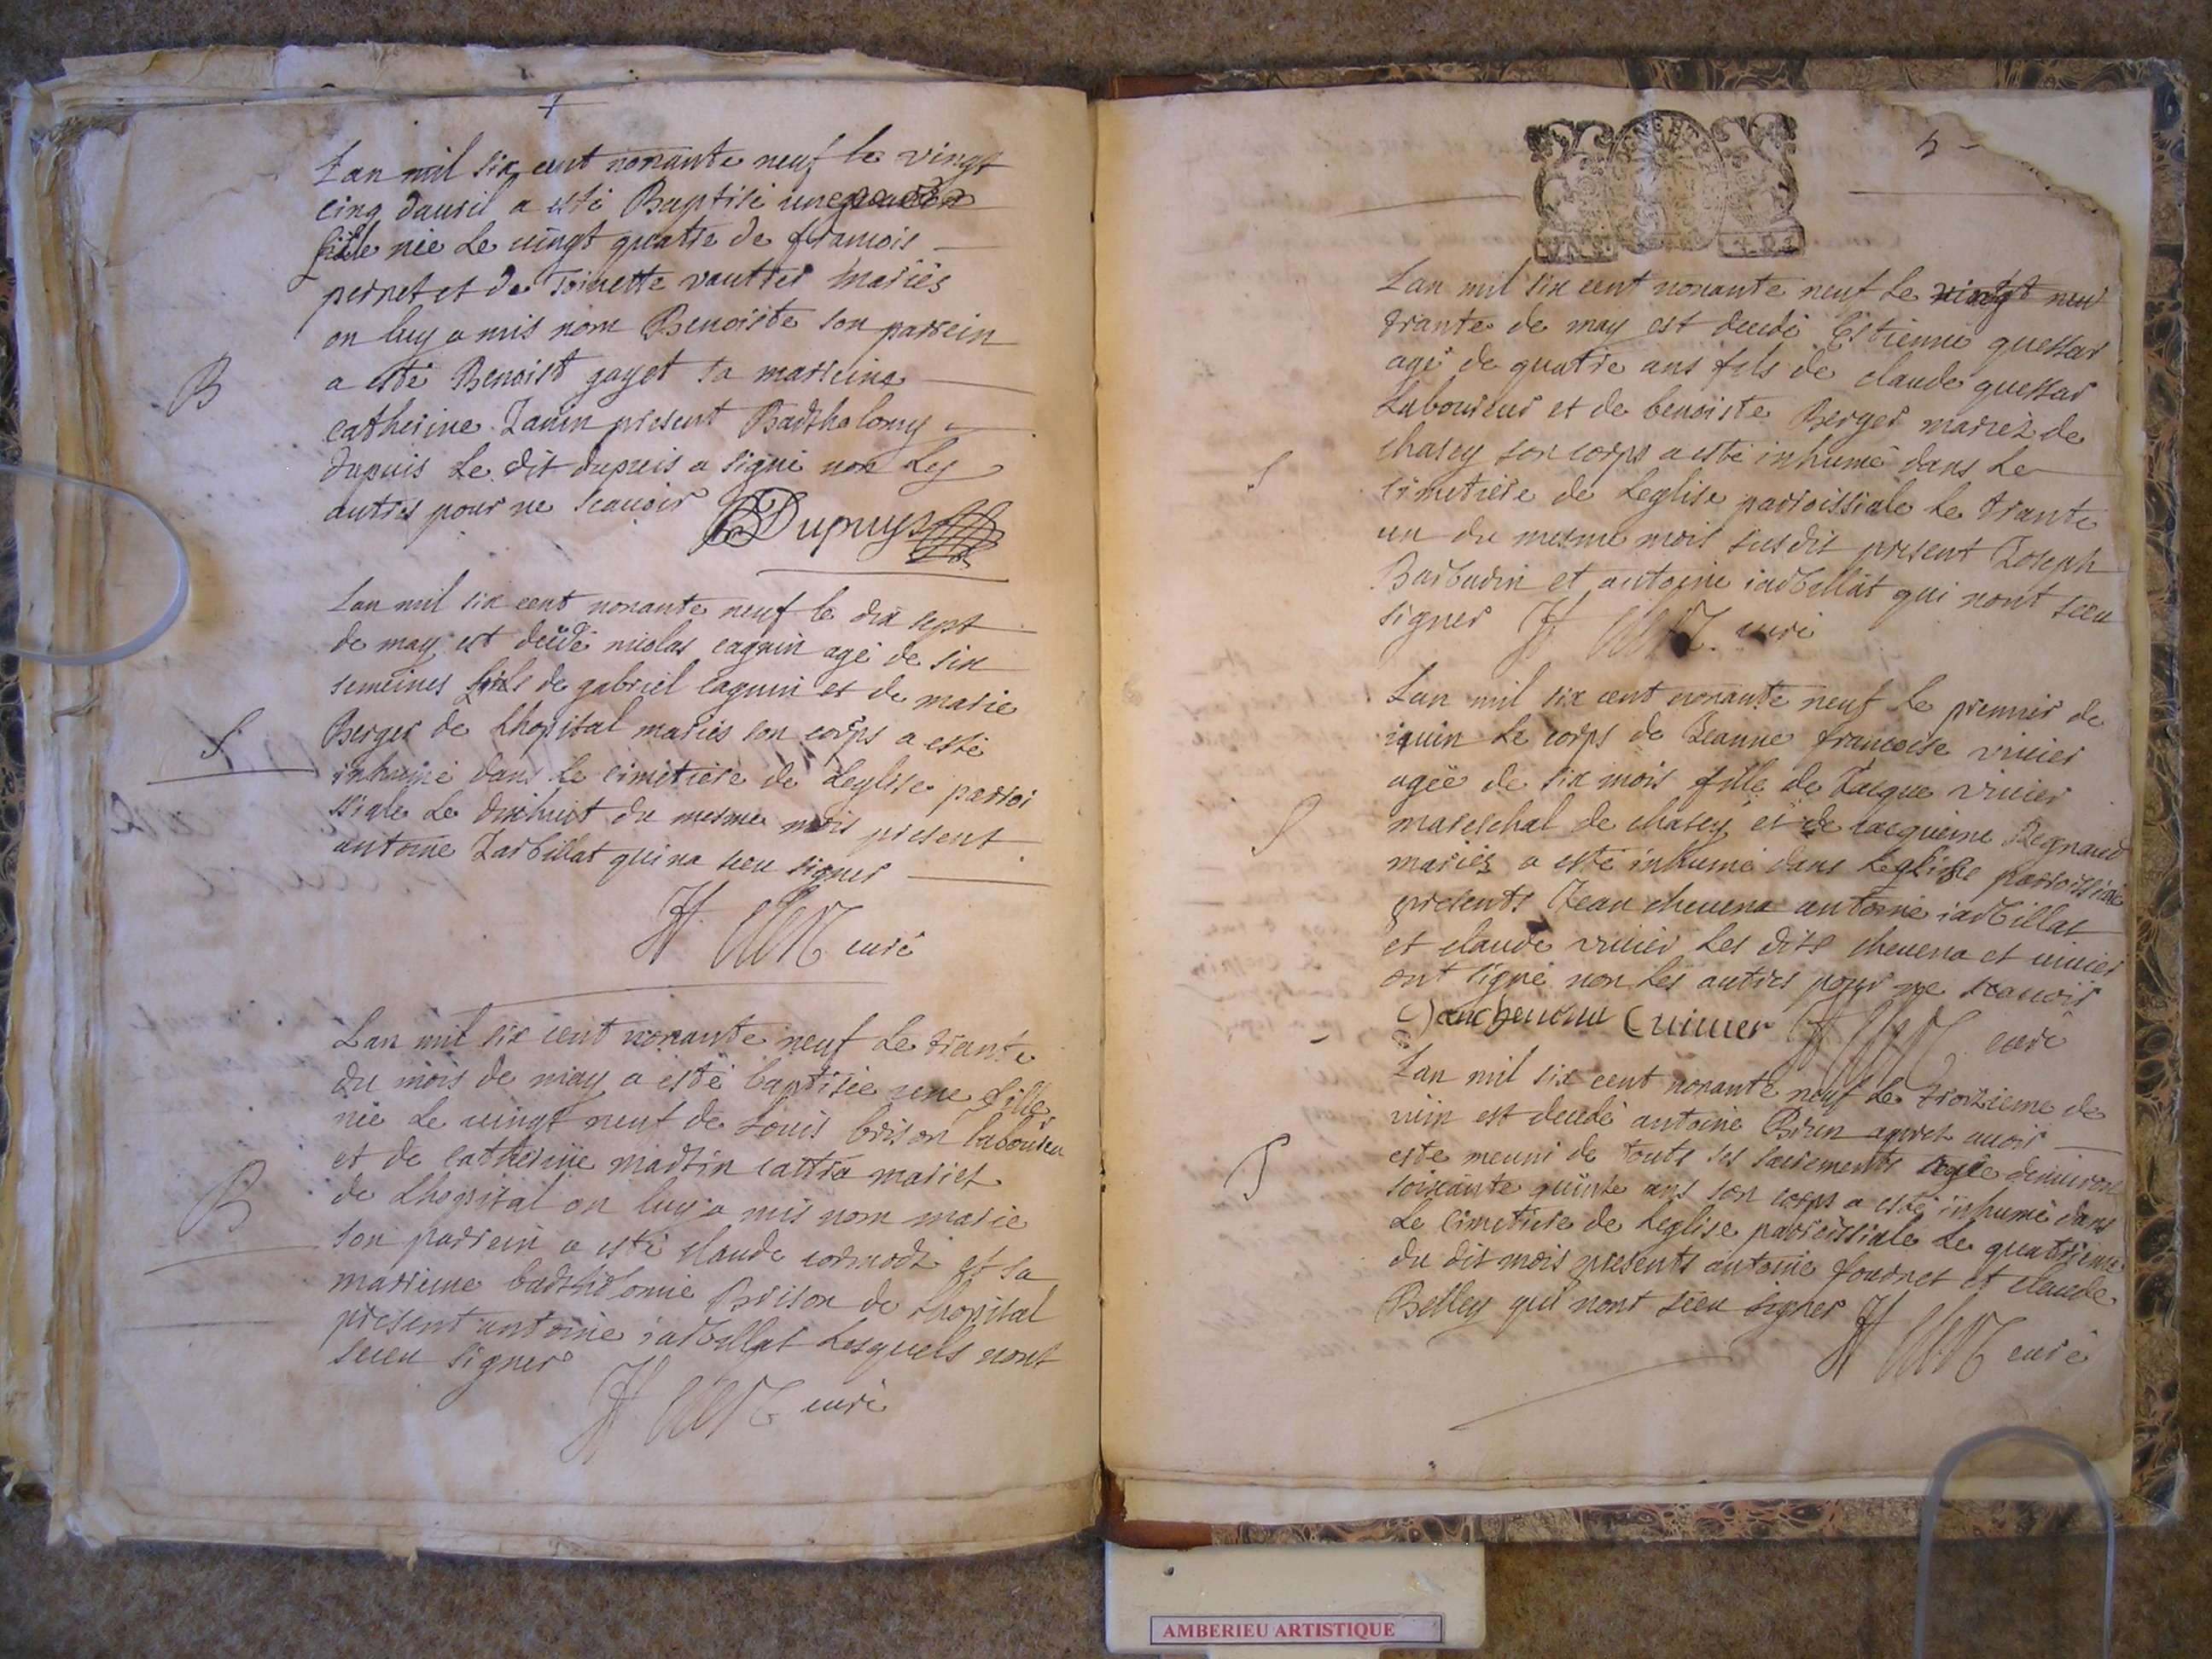 Lan mil six cent nonante neuf le vingt
cinq dauril a esté Baptisé une
fille née Le uingt quatre de francois
pernet et de Toinette vautier mariés
on luy a mis nom Benoiste son parrein
a esté Benoist gayet sa marreine
B
catherine Janin present Barthelomy
dupuis Le dit dupuis a signé non Les
autres pour ne scauoir
Dupuys
Lan mil six cent nonante neuf le dix sept
de may est decedé nicolas caguin agé de six
semeines fils de gabriel caguin et de marie
Berger de Lhopital mariés son corps a esté
S
inhumé dans Le cimetiere de Leglise parroi
ssiale Le dixhuit du mesme mois present
antoine Jarbillat qui na sceu signer
curé
Lan mil six cent nonante neuf Le trante
du mois de may a esté baptisée une fille
née Le uingt neuf de Louis brison laboureu
et de catherine martin cattra mariet
de Lhopital on luy a mis nom marie
B
son parrein a esté claude cormode et sa
marreine barthelomie Brison de Lhopital
present antoine iarbillat Lesquels nont
sceu signer
curé
5
Lan mil six cent nonante neuf Le vingt neu
trante de may est decedé Estienne quessar
agé de quatre ans fils de claude quessar
Laboureur et de benoiste Berger mariez de
chasey son corps a esté inhumé dans Le
S
cimetiere de Leglise parroissiale Le trante
un du mesme mois susdit present Joseph
Barbarin et antoine iarbillat qui nont sceu
signer curé
Lan mil six cent nonante neuf Le premier de
iuin Le corps de Jeanne francoise viuier
agée de six mois fille de Jacque viuier
S
mareschal de chasey et de iacqueme Regnaud
mariés a esté inhumé dans Leglise parroissiale
presents Jean cheuena antoine iarbillat
et claude viuier Les dits cheuena et uiuier
ont signé non Les autres pour ne scauoir
C uiuier curé
Lan mil six cent nonante neuf Le troizieme de
iuin est decedé antoine Brun apprez auoir
S
esté meuni de touts ses sacrements agée denuiron
soixante quinze ans son corps a esté inhumé dans
Le cimetiere de Leglise parroissiale Le quatrieme
du dit mois presents antoine fournet et claude
Belley qui nont sceu signer
curé
AMBERIEU ARTISTIQUE